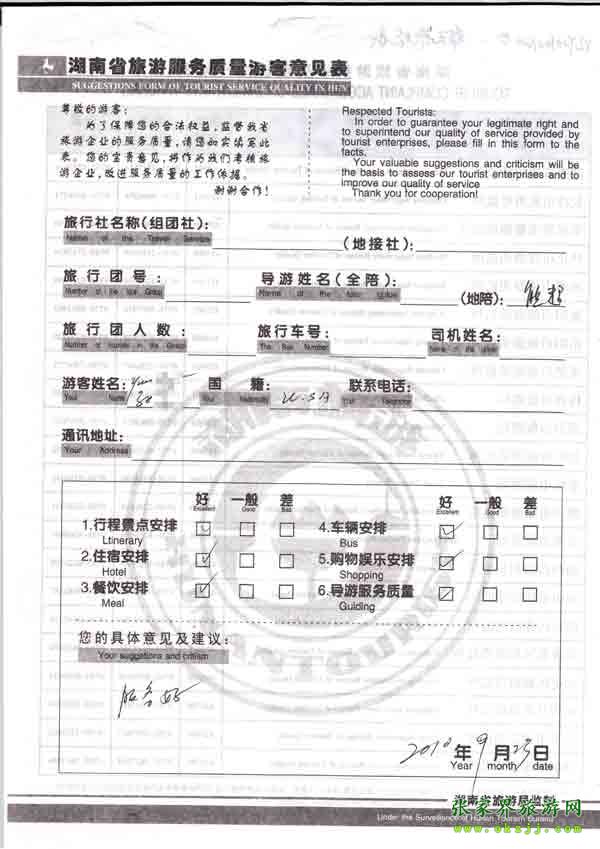 湖南省旅游服务质量游客意见表
SUGGESTIONS FORM OF TOURIST SERVICE QUALITY IN HEN
尊敬的游客:
为了保障您的合法权益,监督我省
旅游企业的服务质量,请您如实填写此
表。您的宝贵意见,将作为我们考核旅
游企业,改进服务质量的工作依据。
谢谢合作!
Respected Tourists:
In order to guarantee your legitimate right and
to superintend our quality of service provided by
tourist enterprises, please fill in this form to the
facts.
Your valuable suggestions and criticism will be
the basis to assess our tourist enterprises and to
improve our quality of service
Thank you for cooperation!
旅行社名称(组团社):
Name of the Travel Service
(地接社):
旅行团号:
Number of the tour Group
导游姓名(全陪):
Name of the tour guide
(地陪):
旅行团人数:
Number of tourists in the Group
旅行车号:
The Bus Number
司机姓名:
Name of the driver
游客姓名:
Your Name
国籍: U.S.A
Your Nationality
联系电话:
Your Telephone
通讯地址:
Your Address
好 一般 差
Excellent Good Bad
好 一般 差
Excellent Good Bad
1.行程景点安排
Ltinerary
4.车辆安排
Bus
2.住宿安排
Hotel
5.购物娱乐安排
Shopping
3.餐饮安排
Meal
6.导游服务质量
Guiding
您的具体意见及建议:
Your suggetions and critism
服务好
2010年9月23日
Year month date
湖南省旅游局监制
Under the Surveillance of Hunan Tourism Bureau
张家界旅游网
www.okzjj.com